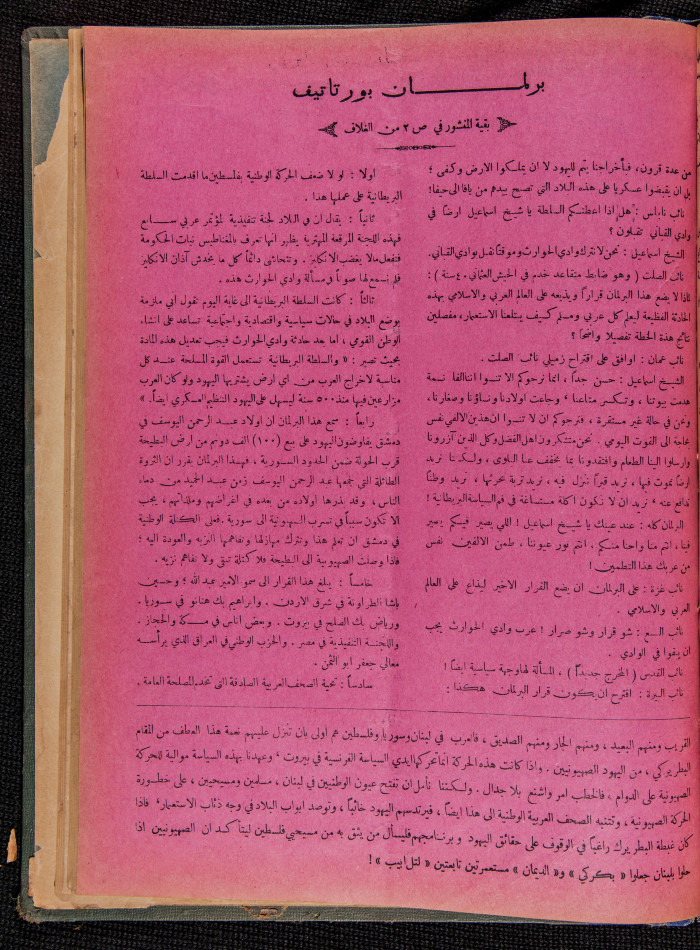 برلمــــــــــان بورتاتيف
بقية المنشور في ص ٢ من الغلاف
من عدة قرون، فبأخراجنا يتم لليهود لا ان يتملكوا الارض وكفى ؛
بل ان يقبضوا عسكريا على هذه البلاد التي تصبح بيدهم من يافا الى حيفا!
نائب نابلس : هل اذا اعطتكم السلطة يا شيخ اسماعيل ارضاً في
وادي القباني تقبلون ؟
الشيخ اسماعيل : نحن لا نترك وادي الحوارث وموقتاً نقبل بوادي القباني.
نائب الصلت ( وهو ضابط متقاعد خدم في الجيش العثماني ٤٠ سنة ) :
لماذا لا يضع هذا البرلمان قراراً ويذيعه على العالم العربي والاسلامي بهذه
الحادثة الفظيعة ليعلم كل عربي ومسلم كيف يبتلعنا الاستعمار، مفصلين
نتائج هذة الخطة تفصيلا واضحاً ؟
نائب عمان : اوافق على اقتراح زميلي نائب الصلت .
الشيخ اسماعيل : حسن جداً ، انما نرجوكم الا تنسوا اننا الفا نسمة
هدمت بيوتنا ، وتكسر متاعنا ، وجاعت اولادنا ونساؤنا وصغارنا ،
ونحن في حالة غير مستقرة ، فنرجوكم ان لا تنسوا ان هذين الالفي نفس
بحاجة الى القوت اليومي . نحن متشكرون اهل الفضل وكل الذين آزرونا
وارسلوا الينا الطعام وافتقدونا بما يخفف عنا البلوى ، ولكننا نريد
ارضاً نموت فيها ، نريد قراراً ننزل فيه ، نريد تربة نحرثها ، نريد وطناً
ندافع عنه ، نريد ان لا نكون اكلة مستساغة في فم السياسة البريطانية !
البرلمان كله : عند عينك يا شيخ اسماعيل ! اللي يصير فيكم يصير
فينا ، انتم منا واحنا منكم ، انتم نور عيوننا ، طمن الالفين نفس
من عربك هذا التطمين !
نائب غزة : على البرلمان ان يضع القرار الاخير ليذاع على العالم
العربي والاسلامي .
نائب السبع : شو قرار وشو صرار ! عرب وادي الحوارث يجب
ان يبقوا في الوادي .
نائب القدس ( المتخرج جديداً ) ، المسألة لها وجهة سياسية ايضاً !
نائب البيرة : اقترح ان يكون قرار البرلمان هكذا :
اولا : لولا ضعف الحركة الوطنية بفلسطين ما اقدمت السلطة
البريطانية على عملها هذا .
ثانياً : يقال ان في البلاد لجنة تنفيذية لمؤتمر عربي سابع
فهذه اللجنة المرقعة المهترية يظهر انها تعرف بالمغناطيس نيات الحكومة
فتفعل ما لا يغضب الانكليز . وتتحاشى دائماً كل ما يخدش آذان الانكليز
فلم نسمع لها صوتاً في مسألة وادي الحوارث هذه .
ثالثاً : كانت السلطة البريطانية الى غاية اليوم تقول أني ملزمة
بوضع البلاد في حالات سياسية واقتصادية واجتماعية تساعد على انشاء
الوطن القومي ، اما بعد حادثة وادي الحوارث فيجب تعديل هذه المادة
بحيث تصير : « والسلطة البريطانية تستعمل القوة المسلحة عند كل
مناسبة لاخراج العرب من اي ارض يشتريها اليهود ولو كان العرب
مزارعين فيها منذ ٥٠٠ سنة ليسهل على اليهود التنظيم العسكري ايضاً . »
رابعاً : سمع هذا البرلمان ان اولاد عبد الرحمن اليوسف في
دمشق يفاوضون اليهود على بيع (١٠٠) الف دونم من ارض البطيحة
قرب الحولة ضمن الحدود السورية ، فهذا البرلمان يقرر ان الثروة
الطائلة التي جمعها عبد الرحمن اليوسف زمن عبد الحميد من دماء
الناس ، وقد بذرها اولاده من بعده في اغراضهم وملذاتهم ، يجب
الا تكون سبباً في تسرب الصهيونية الى سورية . فعلى الكتلة الوطنية
في دمشق ان تعلم هذا وتترك مهازلها وتفاهمها النزيه والعودة اليه ؛
فاذا وصلت الصهيونية الى البطيحة فلا كتلة تبقى ولا تفاهم نزيه .
خامساً : يبلغ هذا القرار الى سمو الامير عبد الله ؛ وحسين
باشا الطراونة في شرق الاردن . وابراهيم بك هنانو في سوريا .
ورياض بك الصلح في بيروت . وبعض اناس في مكة والحجاز .
واللجنة التنفيذية في مصر . والحزب الوطني في العراق الذي يرأسه
معالي جعفر ابو التمن .
سادساً : تحية الصحف العربية الصادقة التي تخدم المصلحة العامة .
القريب ومنهم البعيد ، ومنهم الجار ومنهم الصديق ، فالعرب في لبنان وسوريا وفلسطين هم اولى بان تنزل عليهم نعمة هذا العطف من المقام
البطريركي ، من اليهود الصهيونيين . واذا كانت هذه الحركة انما تحركها ايدي السياسة الفرنسية في بيروت ، وعهدنا بهذه السياسة موالية للحركة
الصهيونية على الدوام ، فالخطب امر واشنع بلا جدال . ولكننا نأمل ان تفتح عيون الوطنيين في لبنان ، مسلمين ومسيحيين ، على خطورة
الحركة الصهيونية ، وتتنبه الصحف العربية الوطنية الى هذا ايضاً ، فيرتد سهم اليهود خائباً ، وتوصد ابواب البلاد في وجه ذئاب الاستعمار ، فاذا
كان غبطة البطريرك راغباً في الوقوف على حقائق اليهود وبرنامجهم فليسأل من يثق به من مسيحيي فلسطين ليتأكد ان الصهيونيين اذا
حلوا بلبنان جعلوا « بكركي » و« الديمان » مستعمرتين تابعتين « لتل ابيب » !